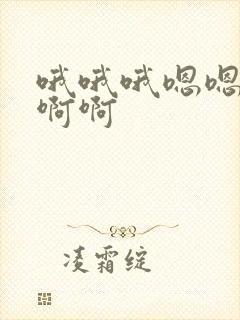 哦哦哦嗯嗯
啊啊
凌霜绽